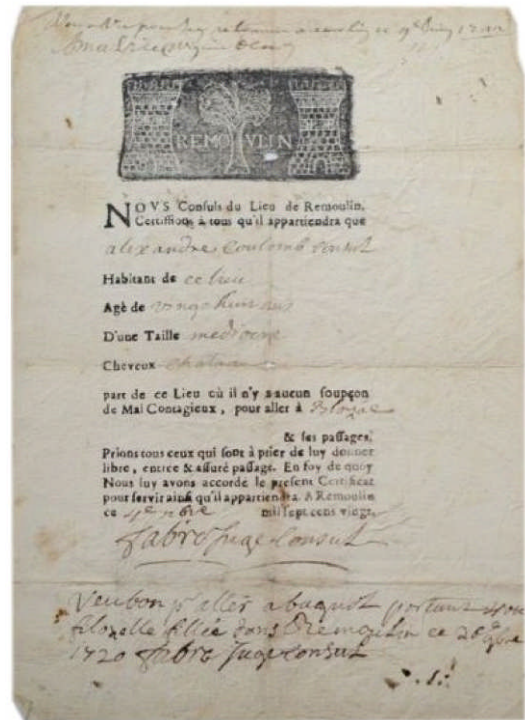 REMOULIN
NOVS Consuls du Lieu de Remoulin,
Certifions à tous qu'il appartiendra que
alexandre coulomb consul
Habitant de ce lieu
Agè de vingt huit ans
D'une Taille mediocre
Cheveux chatain
part de ce Lieu où il n'y a aucun soupçon
de Mal Contagieux, pour aller à
& ses passages.
Prions tous ceux qui sont à prier de luy donner
libre, entree & assuré passage. En foy de quoy
Nous luy avons accordé le present Certificat
pour servir ainsi qu'il appartiendra. A Remoulin
ce 4e nbre mil sept cens vingt.
fabre Juge Consul
Veu bon pr aller a portant
filozelle fillée dans Remoulin ce
1720 fabre Juge Consul